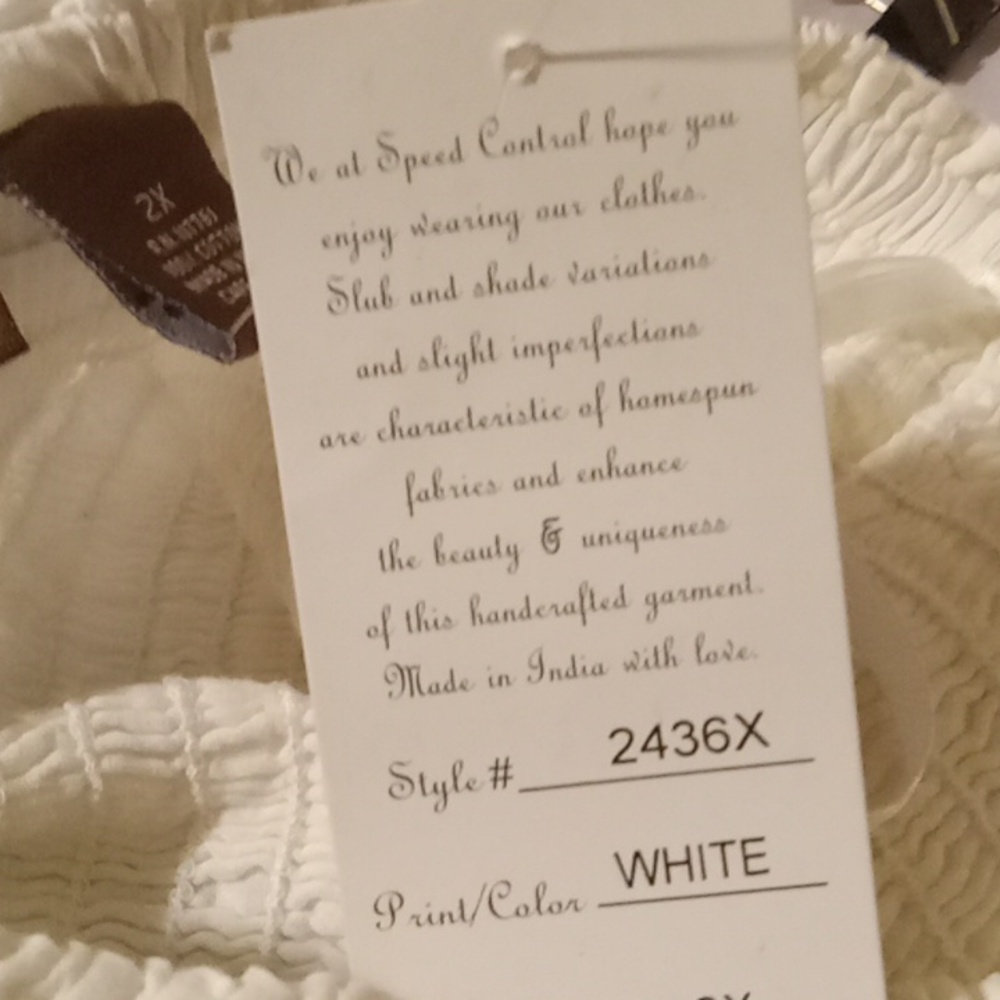 We at Speed Control hope you
enjoy wearing our clothes.
Slub and shade variations
and slight imperfections
are characteristic of homespun
fabrics and enhance
the beauty & uniqueness
of this handcrafted garment.
Made in India with love.
Style# 2436X
Print/Color WHITE
2X